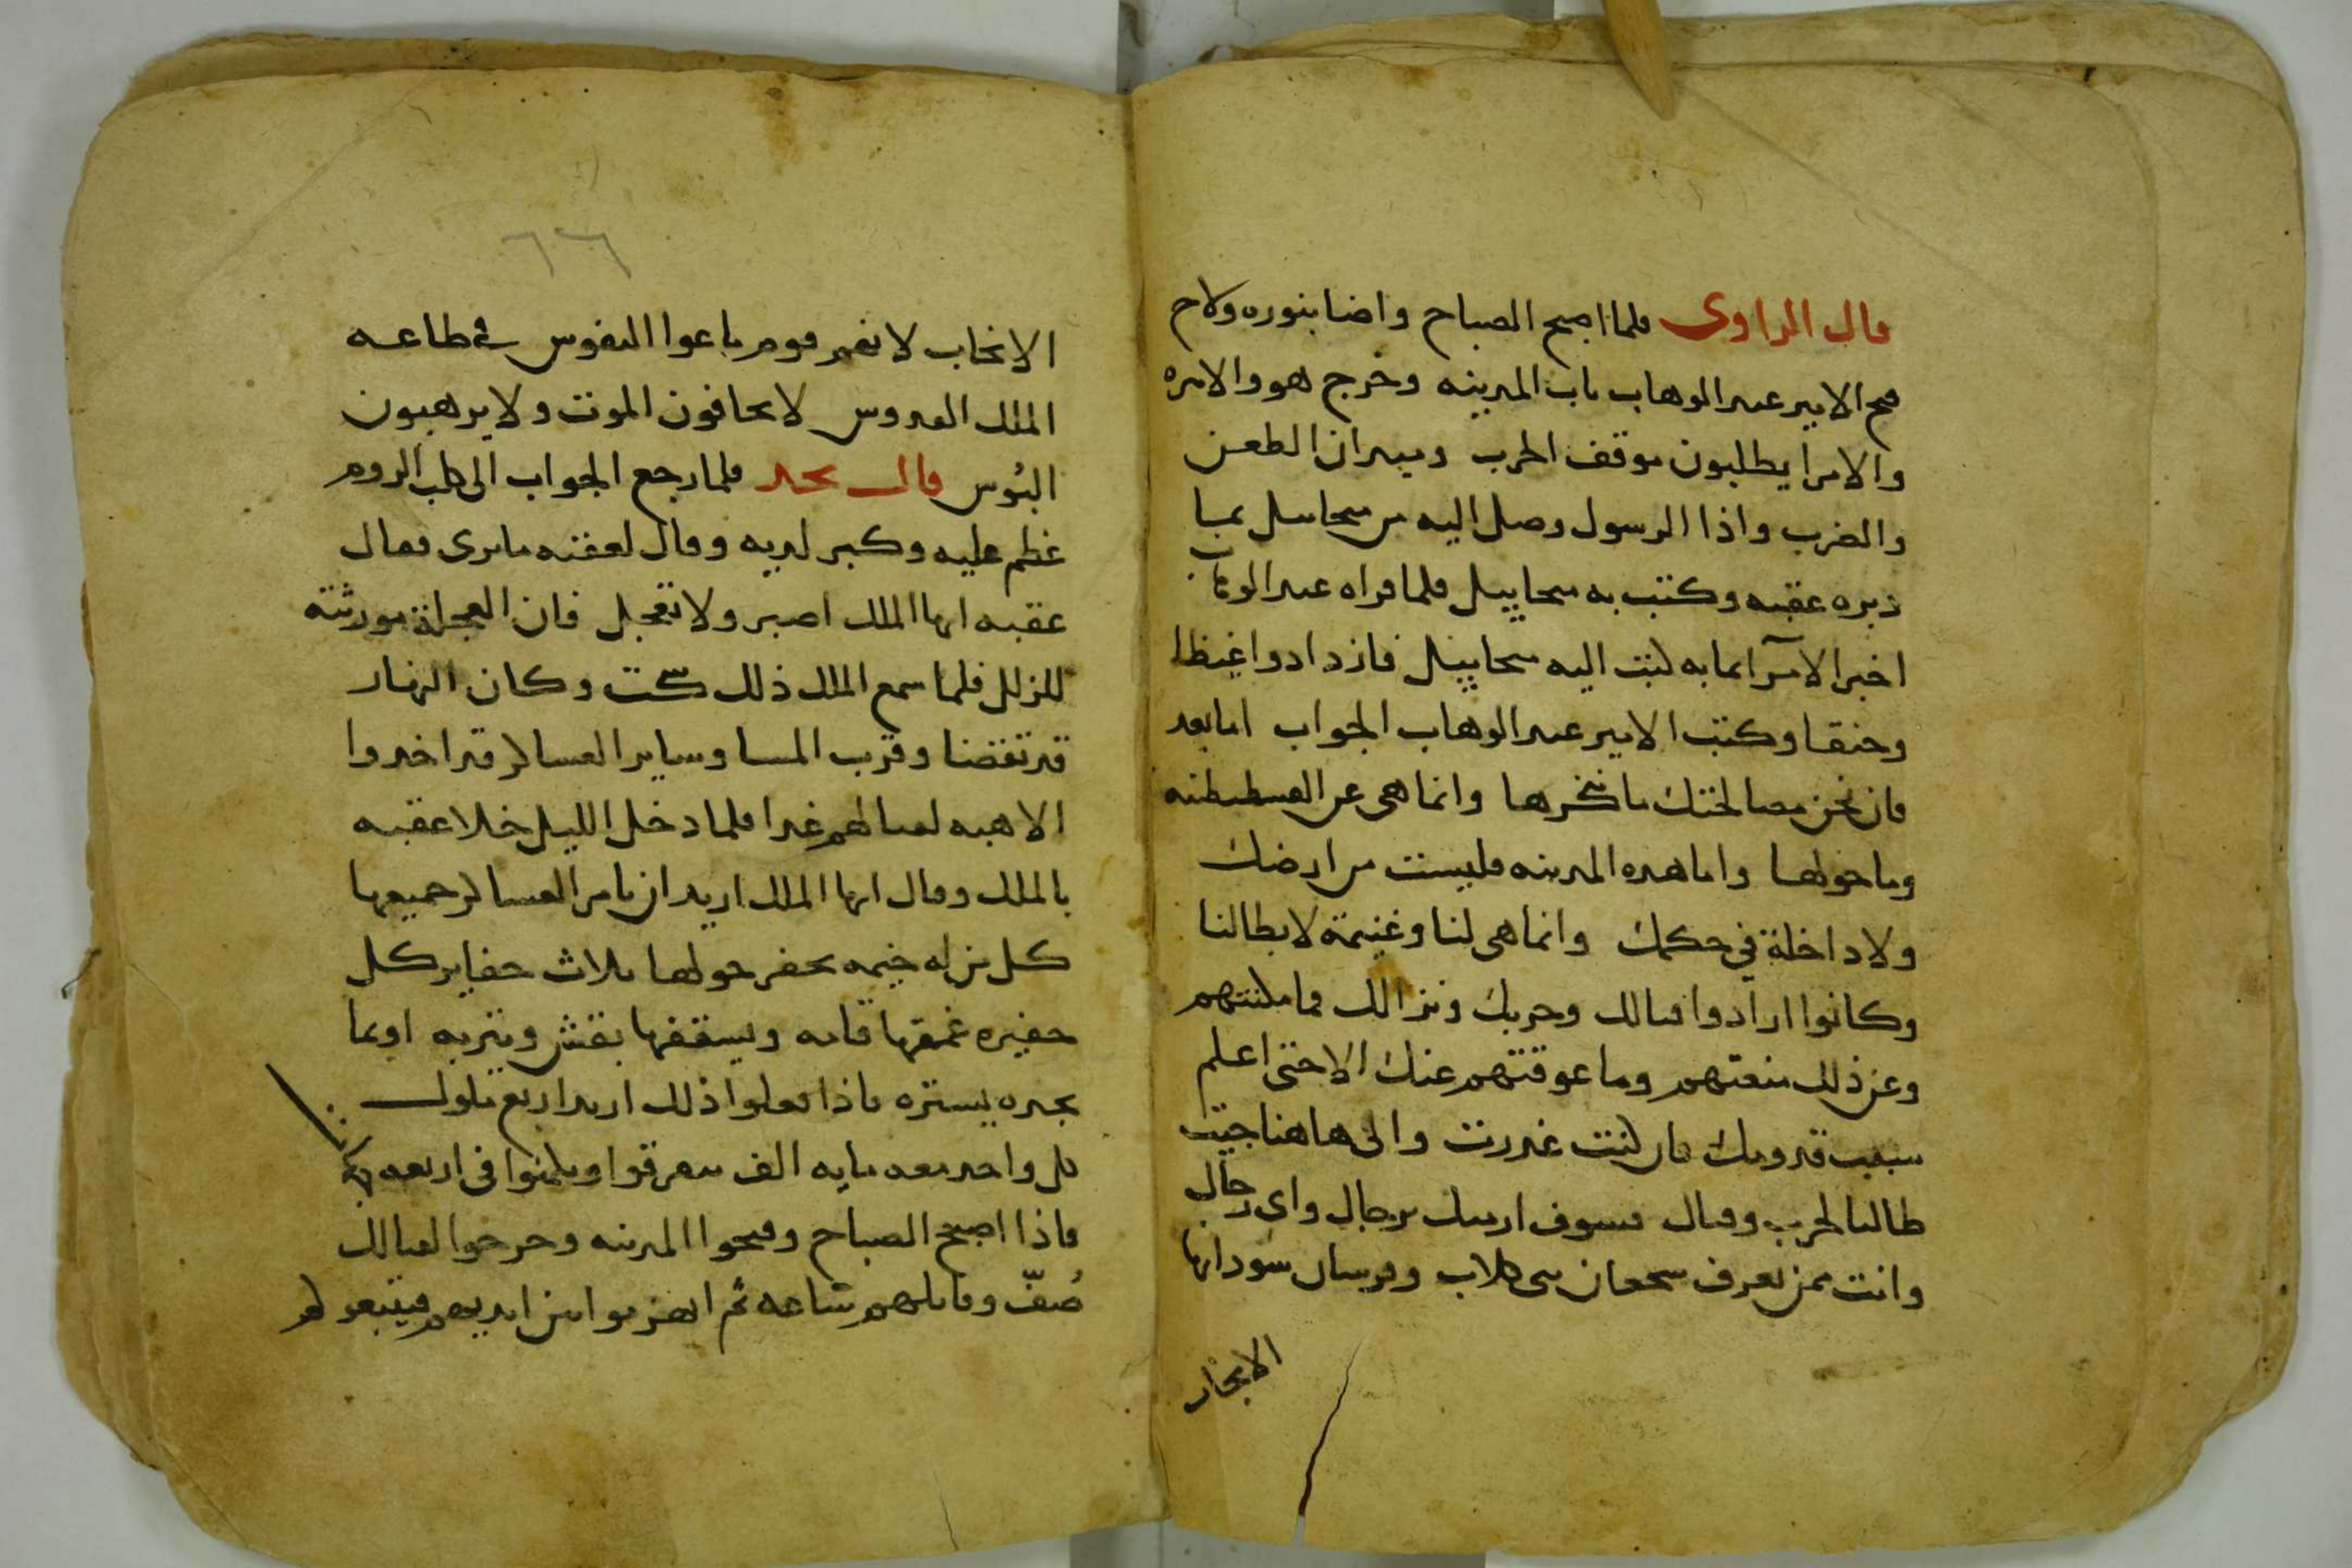 قال الراوى فلما اصبح الصباح واضا بنوره ولاح
فتح الامير عبد الوهاب باب المدينه وخرج هو والاميره
والامرا يطلبون موقف الحرب وميدان الطعن
والضرب واذا الرسول وصل اليه من ميخاييل بما
دبره عقبه وكتب به ميخاييل فلما قراه عبد الوهاب
اخبر الامرا بما به كتب اليه ميخاييل فازدادوا غيظا
وحنقا وكتب الامير عبد الوهاب الجواب اما بعد
فان نحن مصالحتك ما ننكرها وانما هى عن القسطنطنيه
وما حولها واما هذه المدينه فليست من ارضك
ولا داخلة في حكمك وانما هى لنا وغنيمة لابطالنا
وكانوا ارادوا قتالك وحربك ونزالك فما مكنتهم
وعن ذلك منعتهم وما عوقتهم عنك الا حتى اعلم
سبب قدومك فان كنت غدرت والى هاهنا جيت
طالبا لحرب وقتال فسوف ارميك برجال واى رجال
وانت ممن تعرف شجعان بنى كلاب وفرسان سودانها
الانجاب
٦٦
الانجاب لانهم قوم باعوا النفوس في طاعه
الملك القدوس لا يخافون الموت ولا يرهبون
البُوس قال نجد فلما رجع الجواب الى كلب الروم
عظم عليه وكبر لديه وقال لعقبه ما ترى فقال
عقبه ايها الملك اصبر ولا تعجل فان العجلة مورثته
للزلل فلما سمع الملك ذلك سكت وكان النهار
قد تقضا وقرب المسا وساير العساكر قد اخدوا
الاهبه لقتالهم غدا فلما دخل الليل خلا عقبه
بالملك وقال ايها الملك اريد ان تامر العساكر جميعها
كل من له خيمه يحفر حولها ثلاث حفاير كل
حفيره غمقها قامه ويسقفها بقش ويتربه او بما
يجده يستره فاذا فعلوا ذلك اريد اربع ملوك
كل واحد معه مايه الف يتفرقوا ويكمنوا فى اربعه
فاذا اصبح الصباح وفتحوا المدينه وخرجوا لقتالك
صُفّ وقاتلهم ساعه ثم انهزموا من ايديهم فيتبعوكم